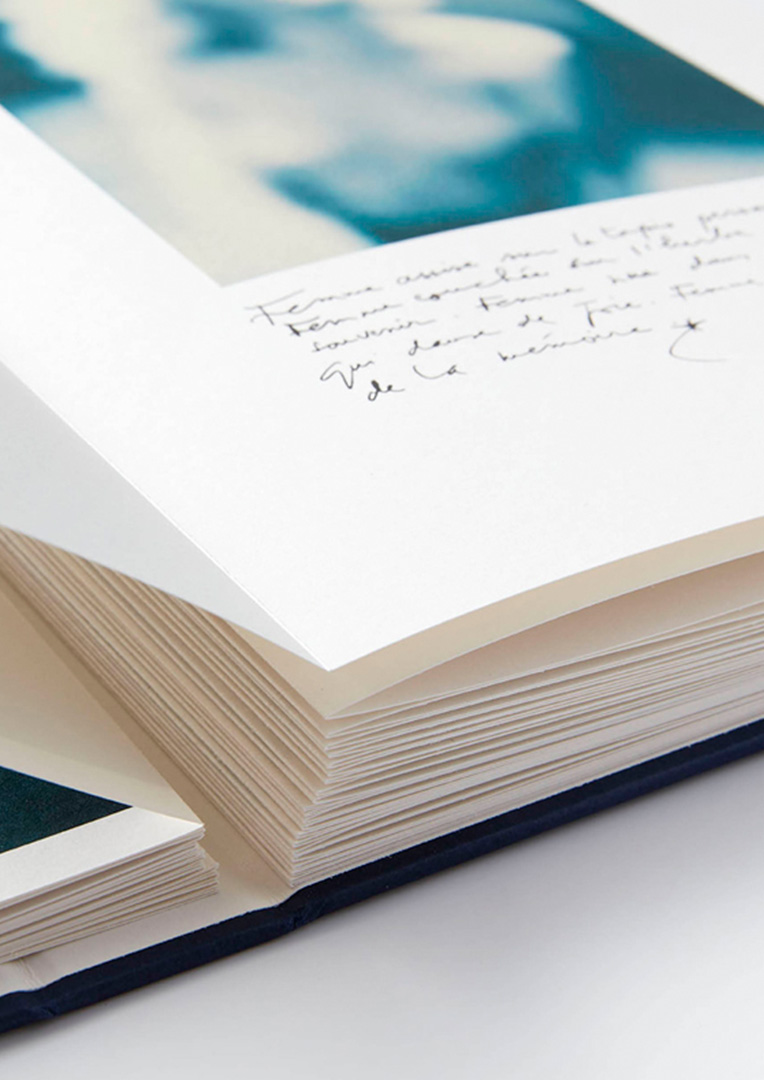 Femme assise sur le tapis
Femme couchée sur l'herbe
souvenir. Femme nue dans
qui danse de joie. Femme
de la mémoire